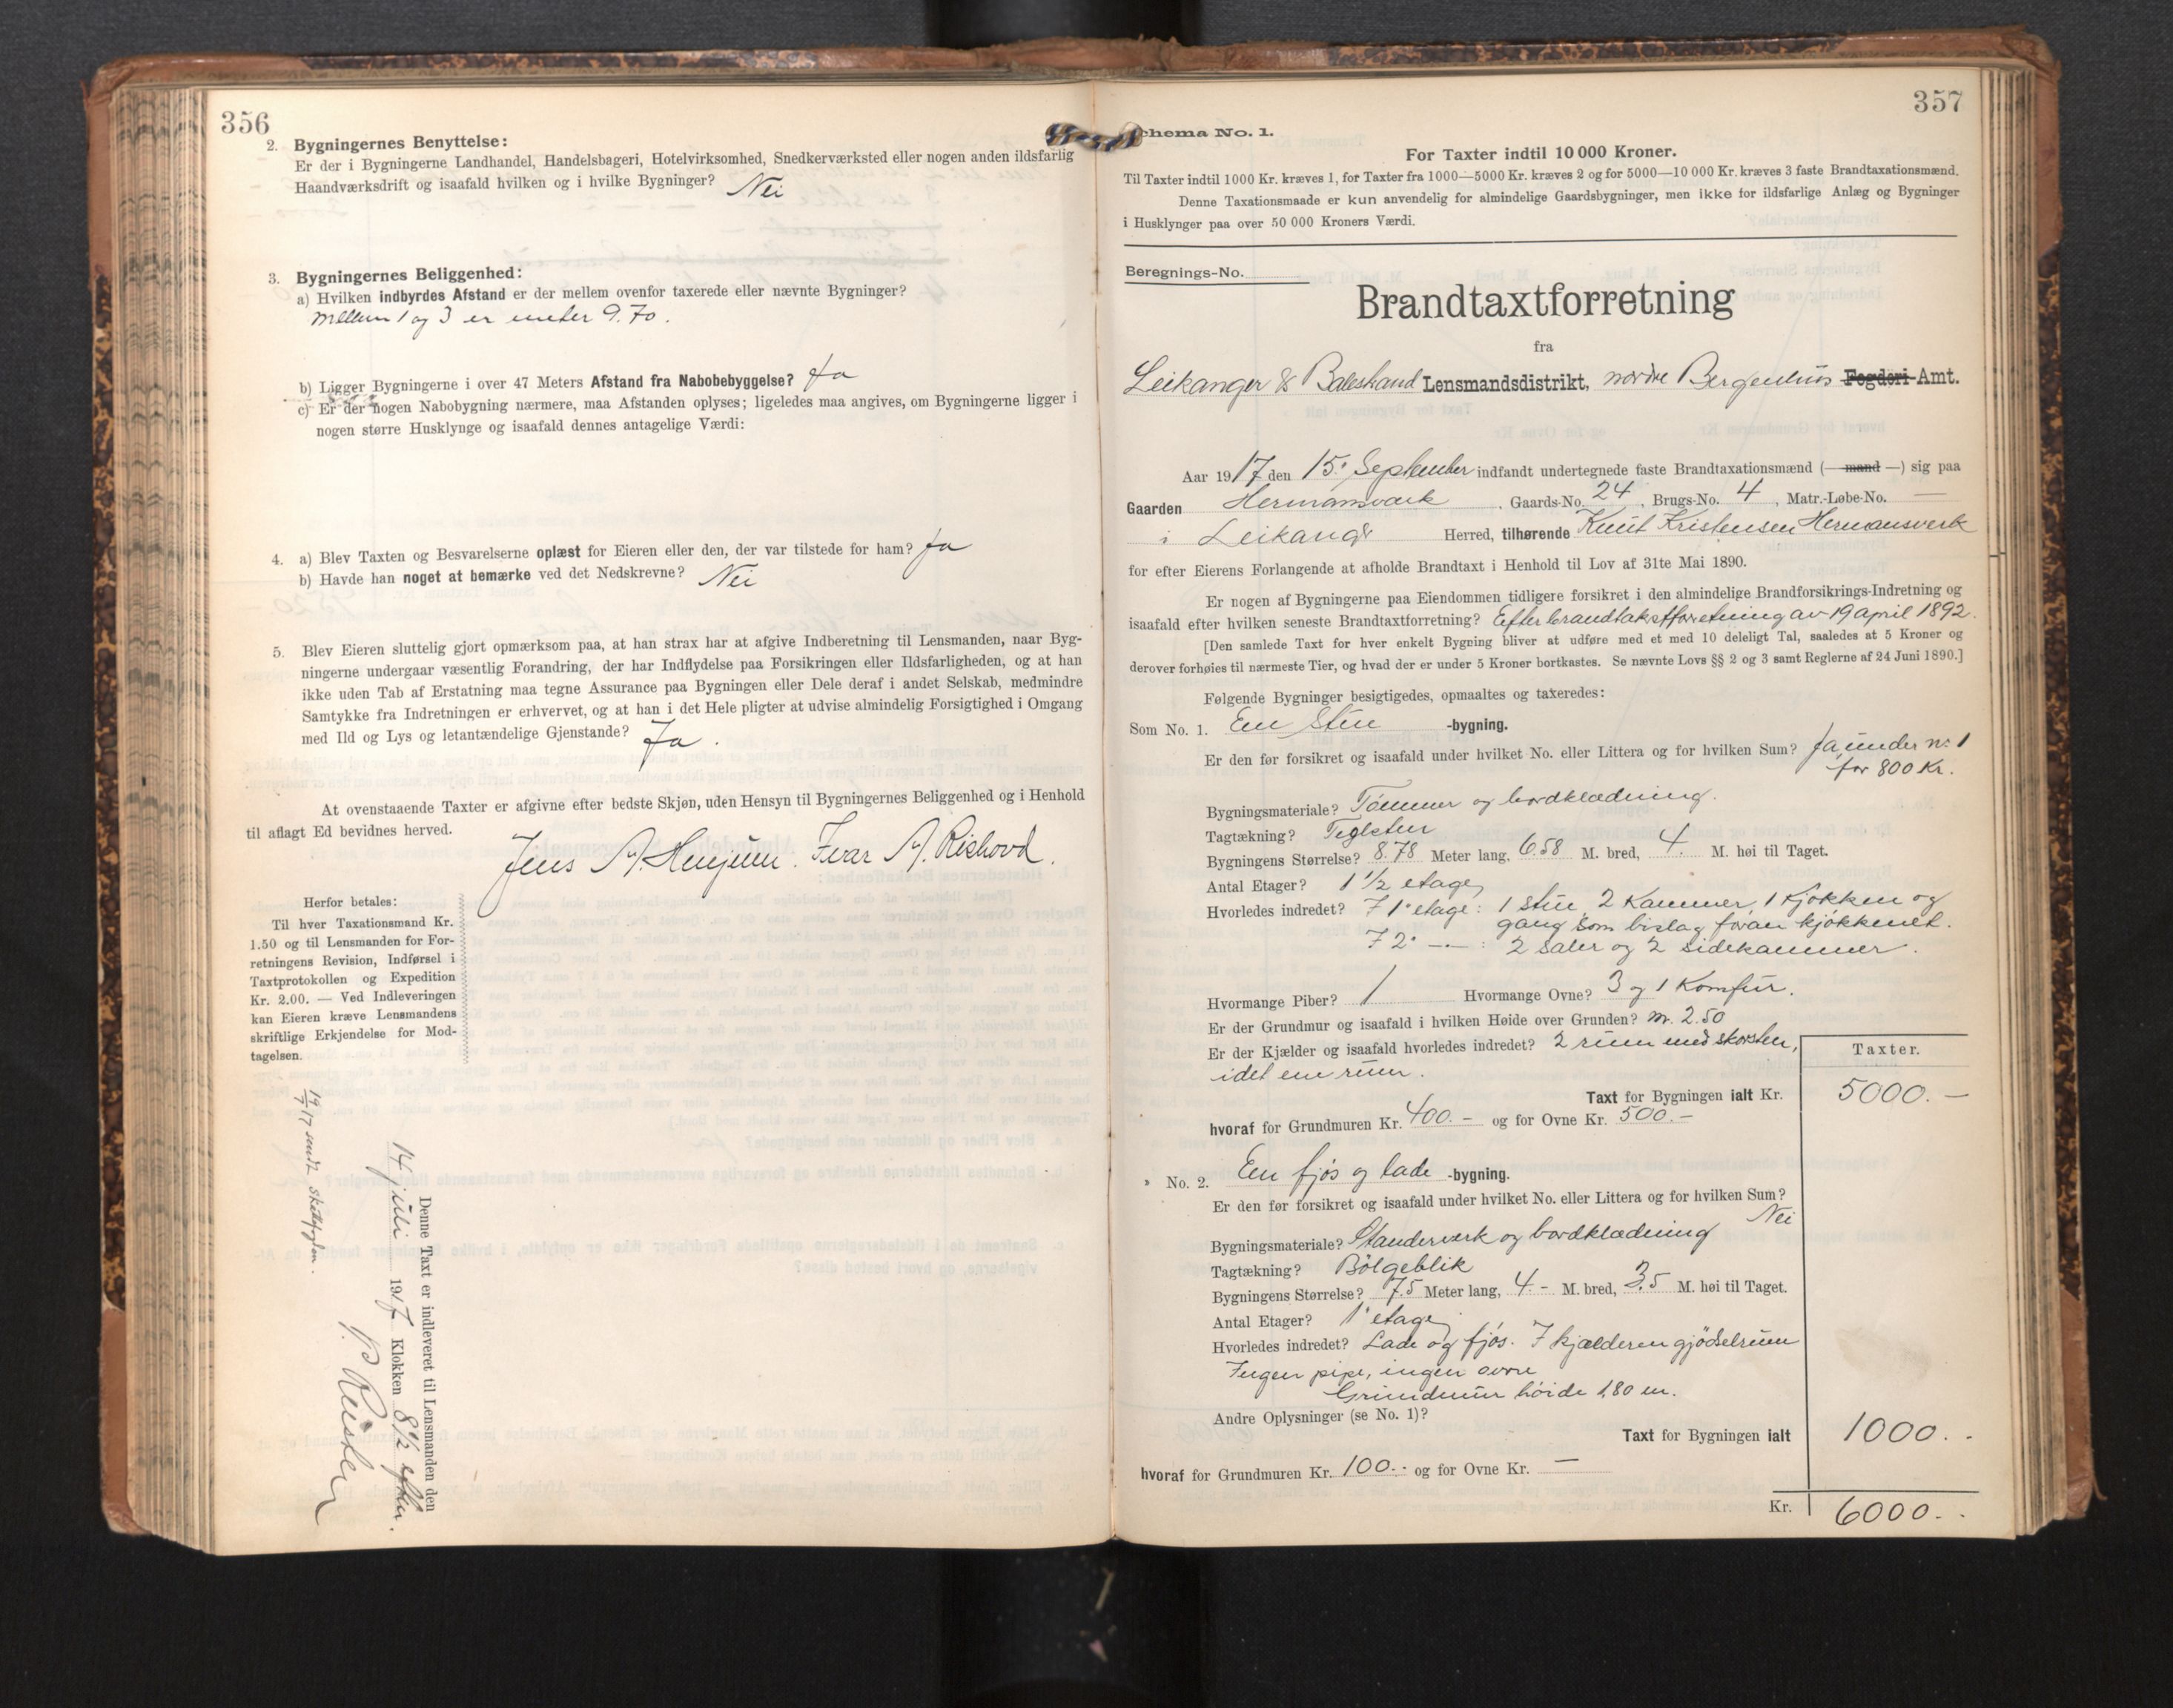 356
2. Bygningernes Benyttelse:
Er der i Bygningerne Landhandel, Handelsbageri, Hotelvirksomhed, Snedkerværksted eller nogen anden ildsfarlig
Haandværksdrift og isaafald hvilken og i hvilke Bygninger? Nei
3. Bygningernes Beliggenhed:
a) Hvilken indbyrdes Afstand er der mellem ovenfor taxerede eller nævnte Bygninger?
Mellem 1 og 3 er meter 9.70.
b) Ligger Bygningerne i over 47 Meters Afstand fra Nabobebyggelse? Ja
c) Er der nogen Nabobygning nærmere, maa Afstanden oplyses; ligeledes maa angives, om Bygningerne ligger i
nogen større Husklynge og isaafald dennes antagelige Værdi:
4. a) Blev Taxten og Besvarelserne oplæst for Eieren eller den, der var tilstede for ham? Ja
b) Havde han noget at bemærke ved det Nedskrevne? Nei
5. Blev Eieren sluttelig gjort opmærksom paa, at han strax har at afgive Indberetning til Lensmanden, naar Byg-
ningerne undergaar væsentlig Forandring, der har Indflydelse paa Forsikringen eller Ildsfarligheden, og at han
ikke uden Tab af Erstatning maa tegne Assurance paa Bygningen eller Dele deraf i andet Selskab, medmindre
Samtykke fra Indretningen er erhvervet, og at han i det Hele pligter at udvise almindelig Forsigtighed i Omgang
med Ild og Lys og letantændelige Gjenstande? Ja.
At ovenstaaende Taxter er afgivne efter bedste Skjøn, uden Hensyn til Bygningernes Beliggenhed og i Henhold
til aflagt Ed bevidnes herved.
Jens A. Henjum. Ivar A. Rishovd.
Herfor betales:
Til hver Taxationsmand Kr.
1.50 og til Lensmanden for For-
retningens Revision, Indførsel i
Taxtprotokollen og Expedition
Kr. 2.00. — Ved Indleveringen
kan Eieren kræve Lensmandens
skriftlige Erkjendelse for Mod-
tagelsen.
Denne Taxt er indleveret til Lensmanden den
14 juli 1917 Klokken 8 1/2 efter.
19/7 17 sendt
357
Schema No. 1.
For Taxter indtil 10 000 Kroner.
Til Taxter indtil 1000 Kr. kræves 1, for Taxter fra 1000—5000 Kr. kræves 2 og for 5000—10 000 Kr. kræves 3 faste Brandtaxationsmænd.
Denne Taxationsmaade er kun anvendelig for almindelige Gaardsbygninger, men ikke for ildsfarlige Anlæg og Bygninger
i Husklynger paa over 50 000 Kroners Værdi.
Beregnings-No.
Brandtaxtforretning
fra
Leikanger & Balestrand Lensmandsdistrikt, nordre Bergenhus Fogderi-Amt.
Aar 1917 den 15. September indfandt undertegnede faste Brandtaxationsmænd (— mand —) sig paa
Gaarden Hermansverk, Gaards-No. 24, Brugs-No. 4, Matr.-Løbe-No. —
i Leikanger Herred, tilhørende Knut Kristensen Hermansverk
for efter Eierens Forlangende at afholde Brandtaxt i Henhold til Lov af 31te Mai 1890.
Er nogen af Bygningerne paa Eiendommen tidligere forsikret i den almindelige Brandforsikrings-Indretning og
isaafald efter hvilken seneste Brandtaxtforretning? Efter brandtakstforretning av 19 april 1892.
[Den samlede Taxt for hver enkelt Bygning bliver at udføre med et med 10 deleligt Tal, saaledes at 5 Kroner og
derover forhøies til nærmeste Tier, og hvad der er under 5 Kroner bortkastes. Se nævnte Lovs §§ 2 og 3 samt Reglerne af 24 Juni 1890.]
Følgende Bygninger besigtigedes, opmaaltes og taxeredes:
Som No. 1. En Stue -bygning.
Er den før forsikret og isaafald under hvilket No. eller Littera og for hvilken Sum? Ja, under no 1
for 800 Kr.
Bygningsmateriale? Tömmer og bordklædning.
Tagtækning? Teglsten
Bygningens Størrelse? 8.78 Meter lang, 6.58 M. bred, 4. M. høi til Taget.
Antal Etager? 1 1/2 etage
Hvorledes indredet? I 1ste etage: 1 stue, 2 Kammer, 1 Kjøkken og
gang som bislag foran kjøkkenet.
I 2. —"— : 2 saler og 2 sidekammer.
Hvormange Piber? 1 Hvormange Ovne? 3 og 1 Komfur.
Er der Grundmur og isaafald i hvilken Høide over Grunden? m. 2.50
Er der Kjælder og isaafald hvorledes indredet? 2 rum med skorsten,
i det ene rum.
Taxter.
Taxt for Bygningen ialt Kr. 5000.—
hvoraf for Grundmuren Kr. 400.- og for Ovne Kr. 500.-
» No. 2. En fjøs og lade -bygning.
Er den før forsikret og isaafald under hvilket No. eller Littera og for hvilken Sum?
Nei
Bygningsmateriale? Standerverk og bordklædning
Tagtækning? Bölgeblik
Bygningens Størrelse? 7.5 Meter lang, 4.- M. bred, 3.5 M. høi til Taget.
Antal Etager? 1 etage
Hvorledes indredet? Lade og fjøs. I kjælderen gjødselrum
Ingen pipe, ingen ovne
Grundmur høide 1,80 m.
Andre Oplysninger (se No. 1)?
Taxt for Bygningen ialt 1000.-
hvoraf for Grundmuren Kr. 100.- og for Ovne Kr. —
Kr. 6000.-